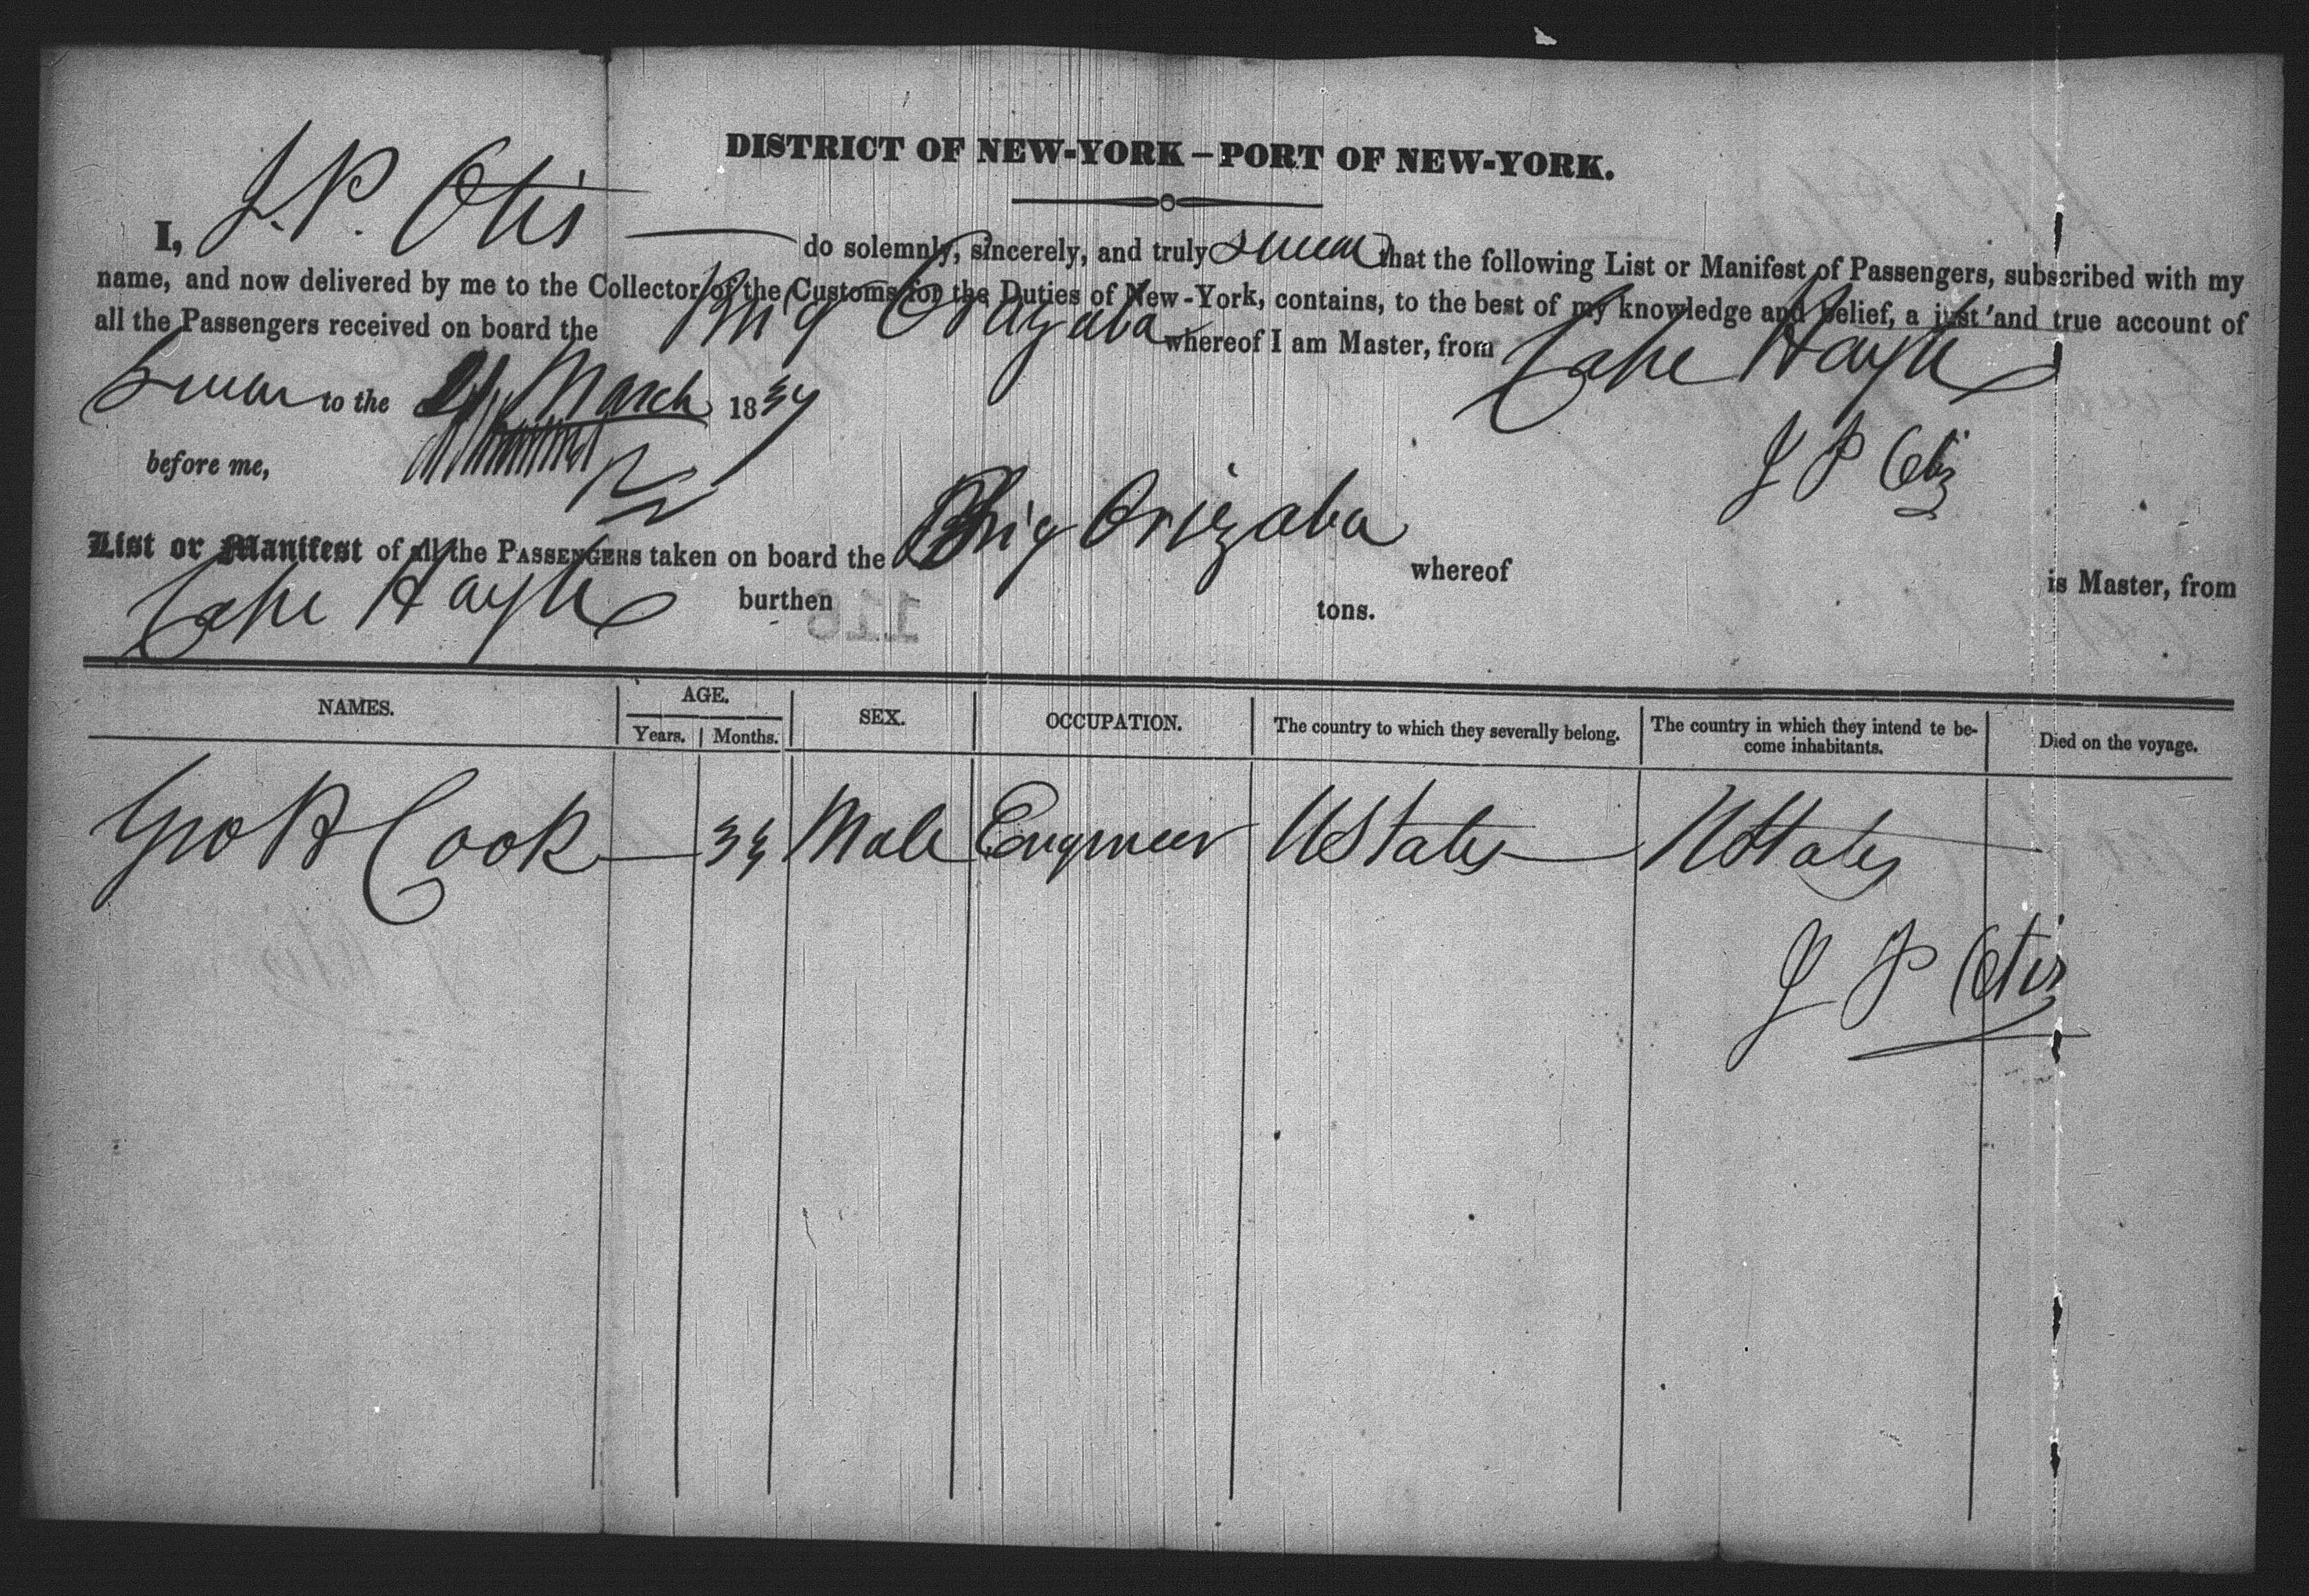 DISTRICT OF NEW-YORK – PORT OF NEW-YORK.
I, J. P. Otis do solemnly, sincerely, and truly swear that the following List or Manifest of Passengers, subscribed with my
name, and now delivered by me to the Collector of the Customs for the Duties of New-York, contains, to the best of my knowledge and belief, a just and true account of
all the Passengers received on board the Brig Orizaba whereof I am Master, from Cape Hayti
Sworn to the 21 March 18
before me,
J P Otis
List or Manifest of all the PASSENGERS taken on board the Brig Orizaba whereof is Master, from
Cape Hayti burthen tons.
116
NAMES. AGE. SEX. OCCUPATION. The country to which they severally belong. The country in which they intend te be-
come inhabitants. Died on the voyage.
Years. Months.
Geo Cook Male Engineer U States U States
J P Otis